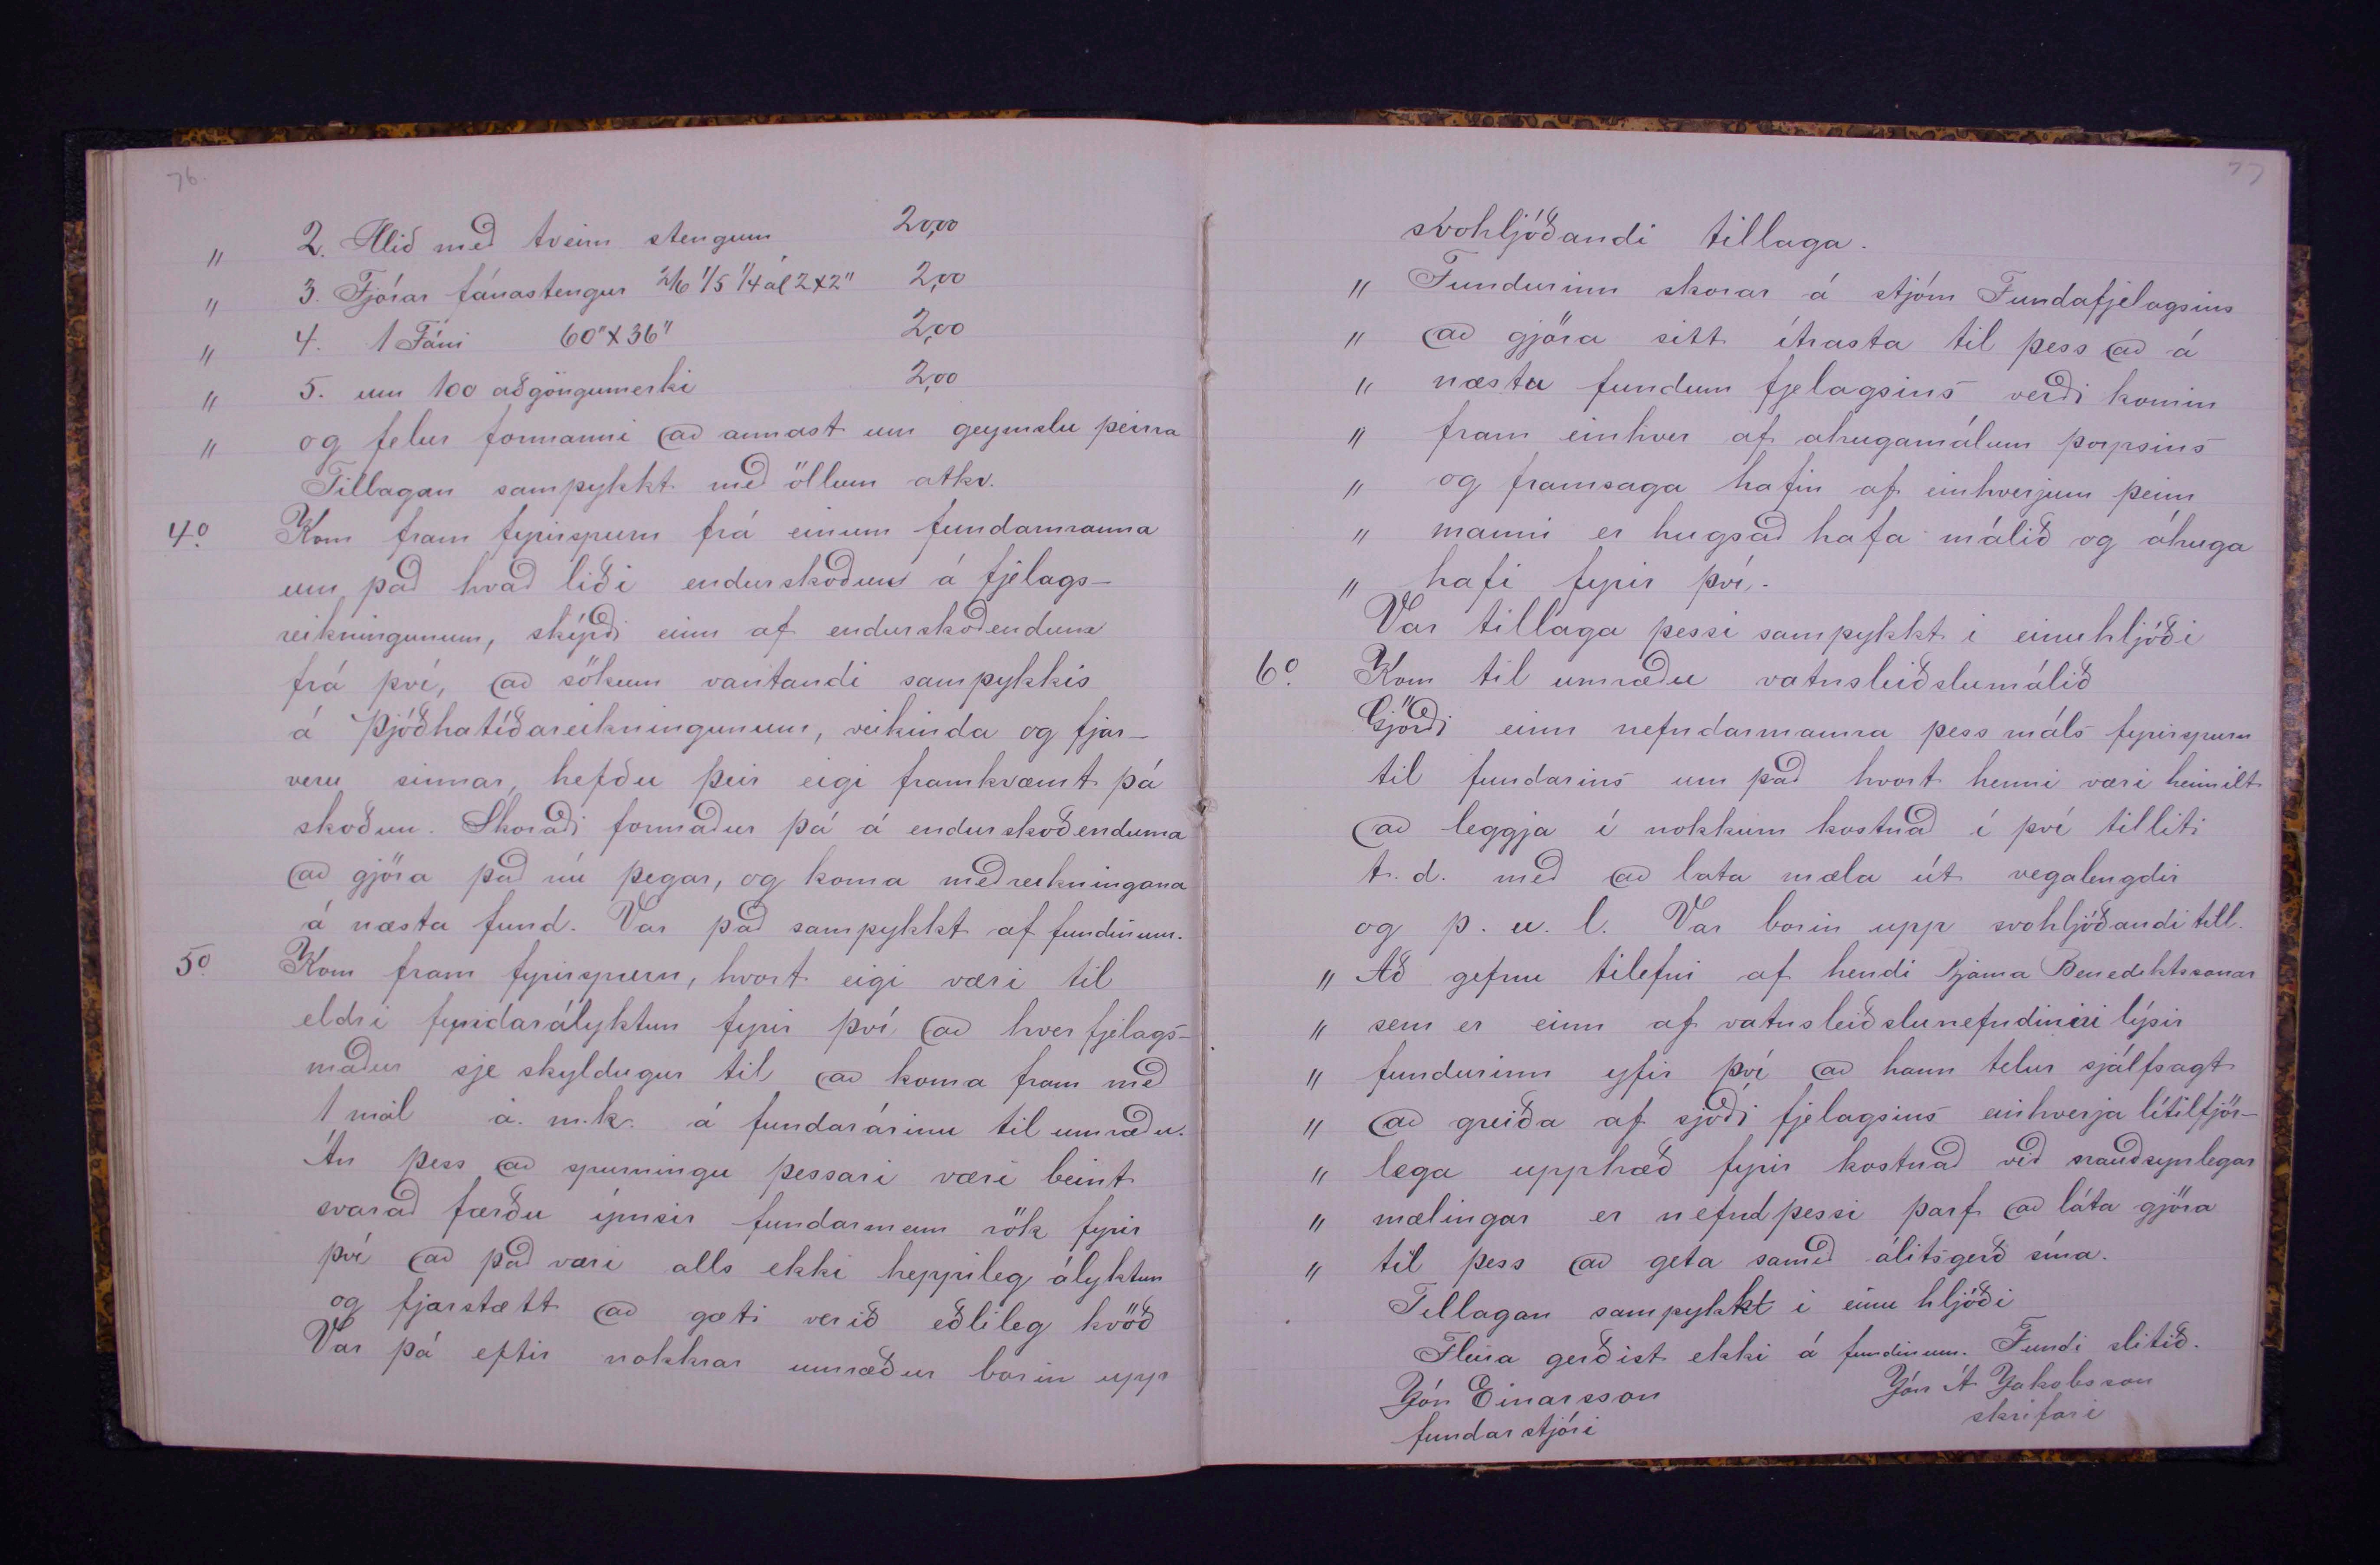 76.
" 2. Hlið með tveim stengum 20,00
" 3. Fjórar fánastengur 2/6 1/5 1/4 al 2x2" 2,00
" 4. 1 Fáni 60"x36" 2,00
" 5. um 100 aðgöngumerki 2,00
" og felur formanni að annast um geymslu þeirra
Tillagan samþykkt með öllum atkv.
4º. Kom fram fyrirspurn frá einum fundarmanna
um það hvað liði endurskoðun á fjelags-
reikningunum, skýrði einn af endurskoðendum
frá því, að sökum vantandi samþykkis
á þjóðhatíðareikningunum, veikinda og fjar-
veru sinnar, hefðu þeir eigi framkvæmt þá
skoðun. Skoraði formaður þá á endurskoðenduma
að gjöra það nú þegar, og koma með reikningana
á næsta fund. Var það samþykkt af fundinum.
5º. Kom fram fyrirspurn, hvort eigi væri til
eldri fundarályktun fyrir því að hver fjelags-
maður sje skyldugur til að koma fram með
1 mál á. m.k. á fundarárinu til umræðu.
Án þess að spurningu þessari væri beint
svarað færðu ýmsir fundarmenn rök fyrir
því að það væri alls ekki heppileg ályktun
og fjarstætt að gæti verið eðlileg kvöð
Var þá eftir nokkrar umræður borin upp
77
svohljóðandi tillaga.
" Fundurinn skorar á stjórn Fundafjelagsins
" að gjöra sitt ítrasta til þess að á
" næstu fundum fjelagsins verði komin
" fram einhver af ahugamálum þorpsins
" og framsaga hafin af einhverjum þeim
" manni er hugsað hafa málið og áhuga
" hafi fyrir því.
Var tillaga þessi samþykkt i einuhljóði
6º. Kom til umræðu vatnsleiðslumálið
Gjörði einn nefndarmanna þess máls fyrirspurn
til fundarins um það hvort henni væri heimilt
að leggja í nokkurn kostnað í því tilliti
t. d. með að lata mæla út vegalengdir
og þ. u. l. Var borin upp svohljóðandi till.
" Að gefnu tilefni af hendi Bjarna Benediktssonar
" sem er einn af vatnsleiðslunefndinni lýsir
" fundurinn yfir því að hann telur sjálfsagt
" að greiða af sjóði fjelagsins einhverja lítilfjör-
" lega upphæð fyrir kostnað við nauðsynlegar
" mælingar er nefnd þessi þarf að láta gjöra
" til þess að geta samið álitsgerð sína.
Tillagan samþykkt i einu hljóði
Fleira gerðist ekki á fundinum. Fundi slitið.
Jón Einarsson Jón Á Jakobsson
fundarstjóri skrifari